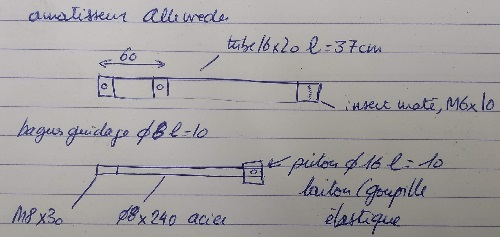 amortisseur
60
tube 16x20 l=37cm
insert maté, M6x10
bagues guidage ø8 l=10
piston ø16 l=10
laiton (goupille
élastique
M8x30
ø8x240 acier